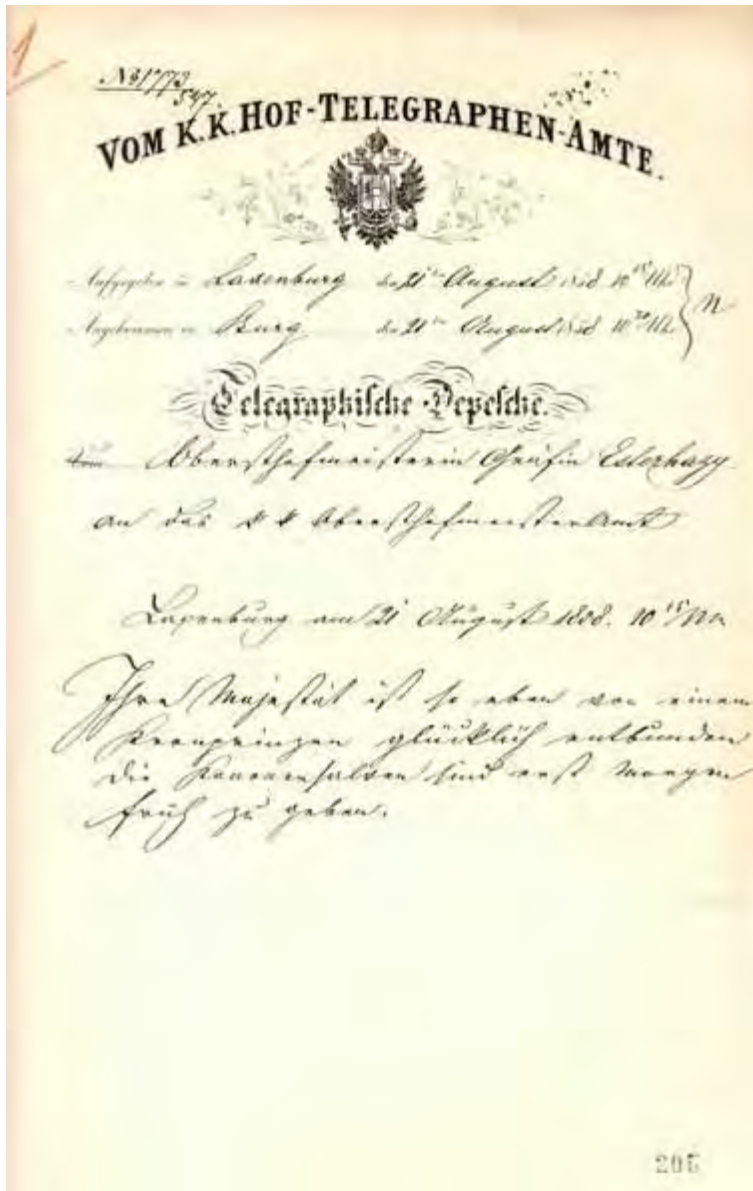 1
No 31773
547
VOM K.K. HOF-TELEGRAPHEN-AMTE.
Aufgegeben in Laxenburg den 21ten August 1858 10 15 Uhr
Angekommen in Burg den 21ten August 1858 10 20 Uhr } N
Telegraphische Depesche.
Obersthofmeisterin Gräfin Esterhazy
an das k k Obersthofmeisteramt
Laxenburg am 21 August 1858. 10 15
Ihre Majestät ist so eben von einem
Kronprinzen glücklich entbunden
die Kanonensalven sind erst Morgen
früh zu geben.
205